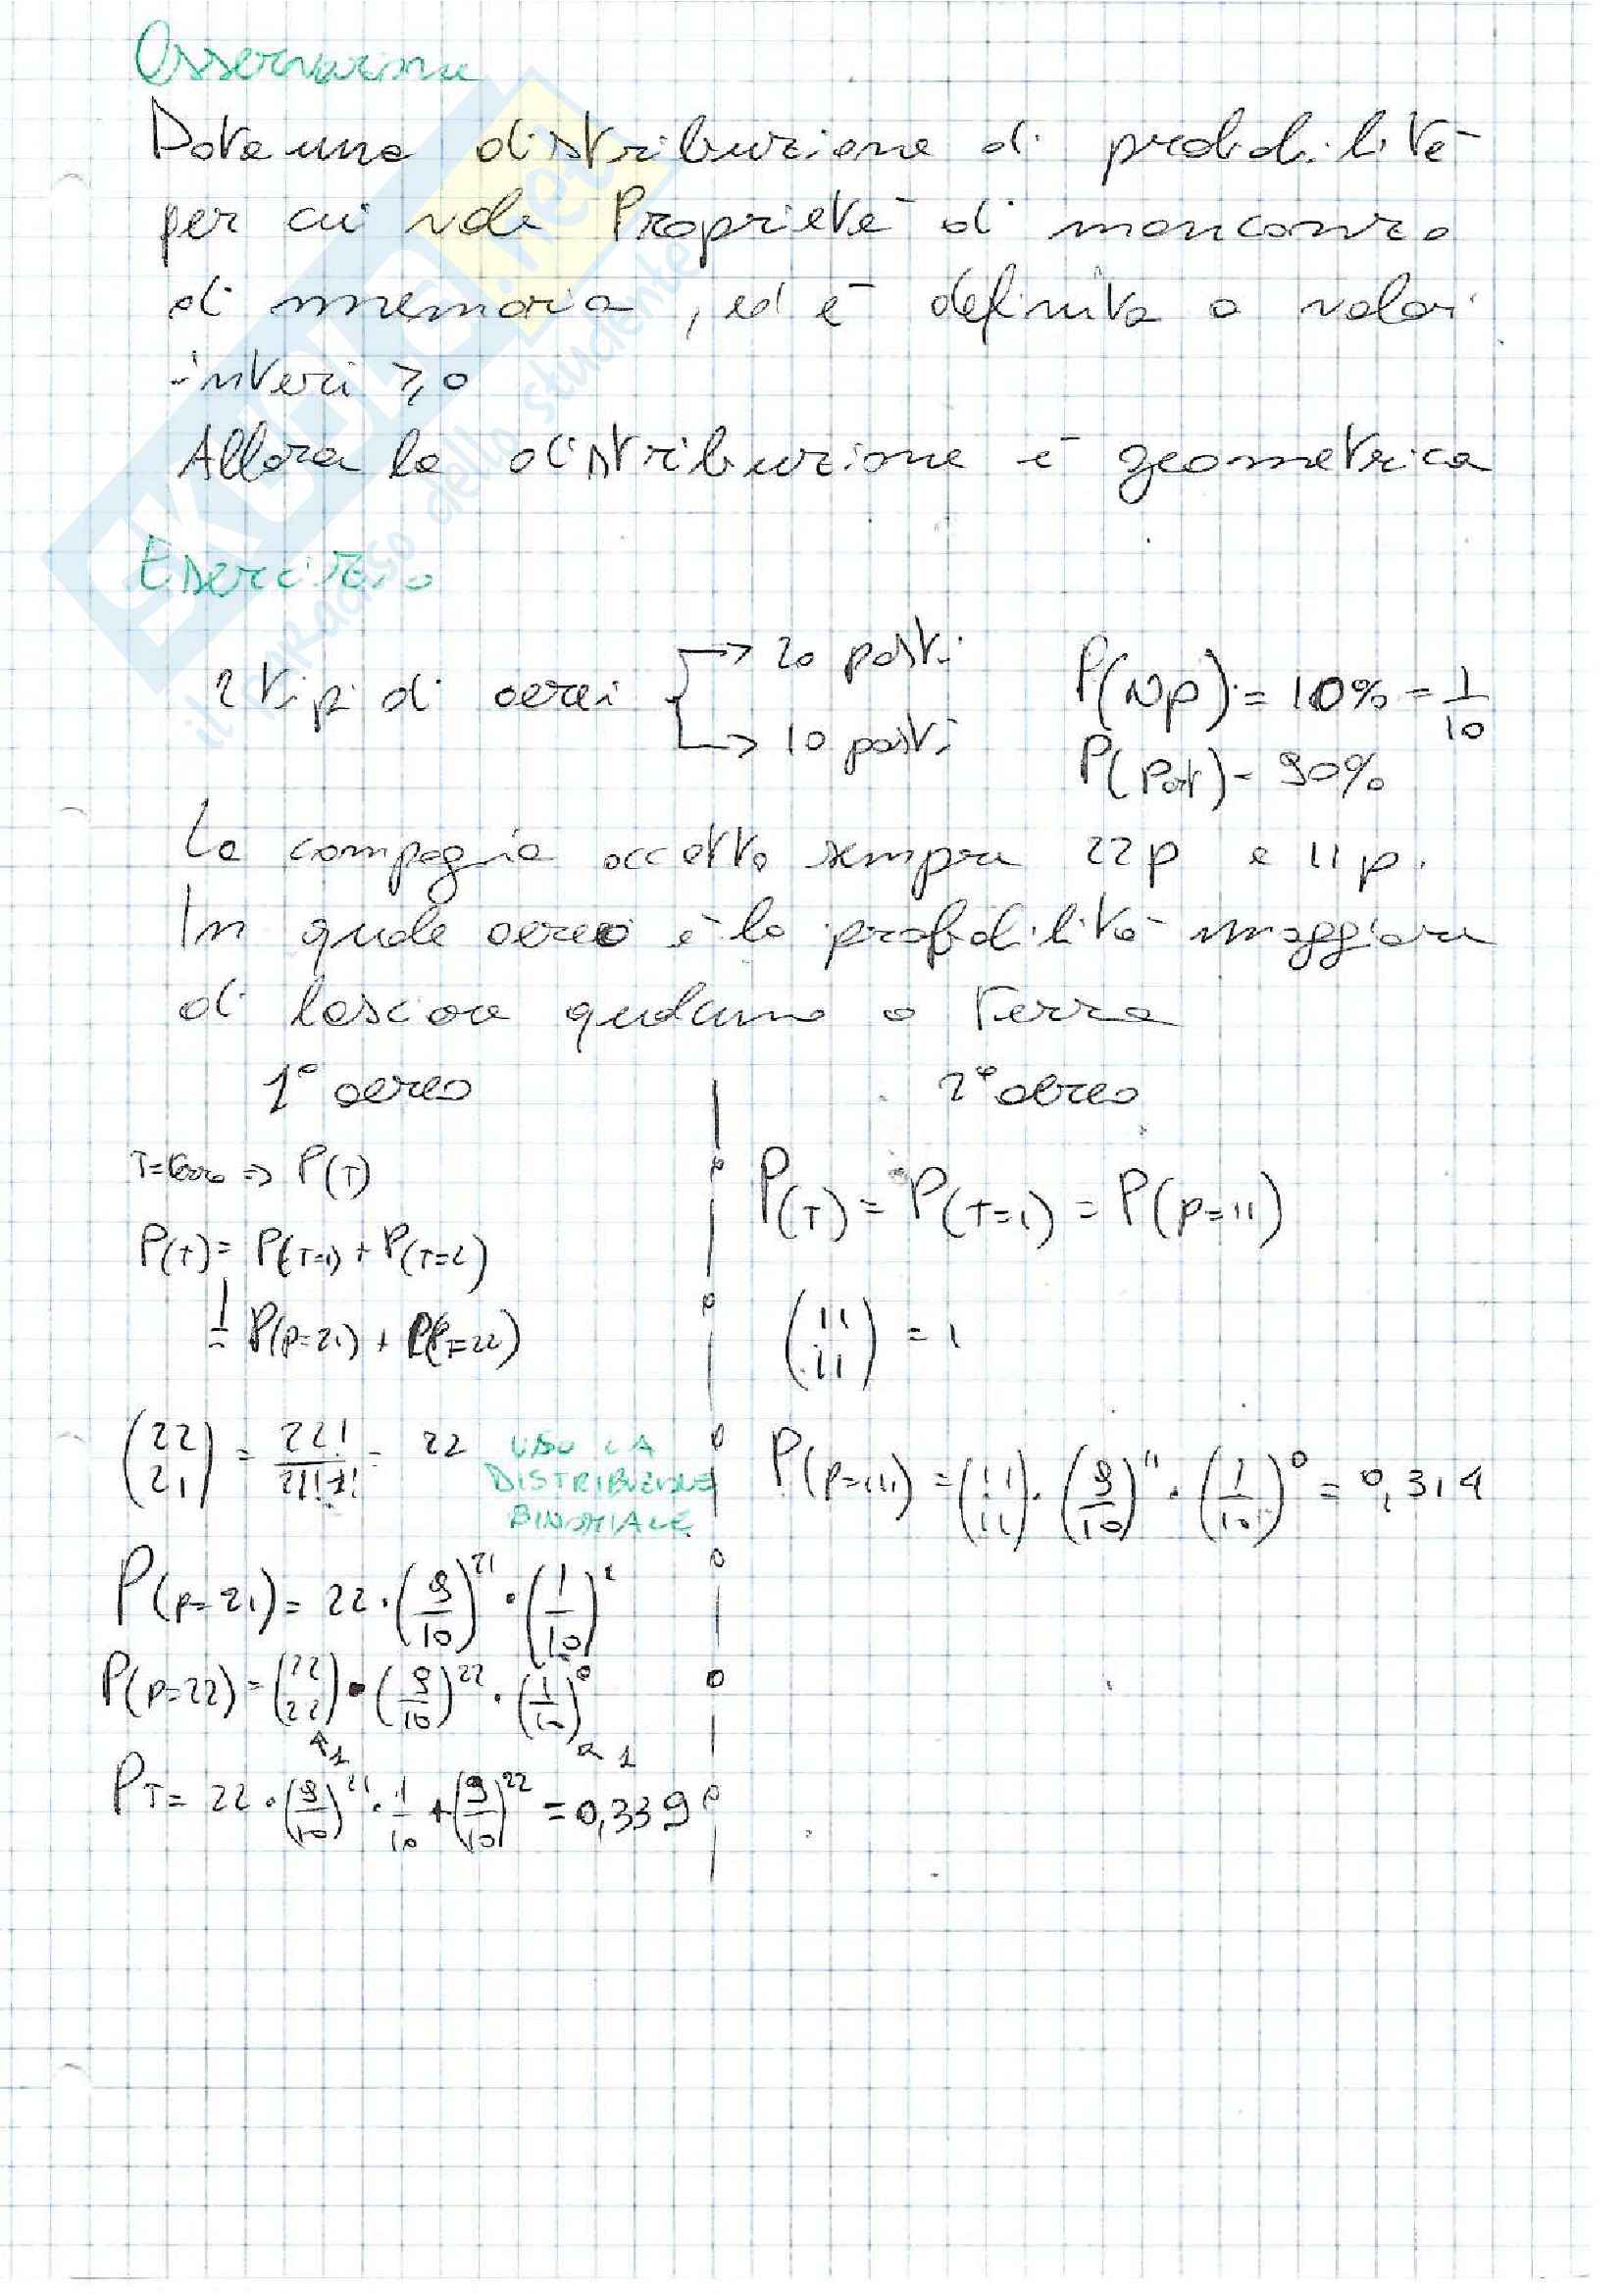 Osservazione
Data una distribuzione di probabilità
per cui vale Proprietà di mancanza
di memoria, ed è definita a valori
interi ≥0
Allora la distribuzione è geometrica
Esercizio
2 tipi di aerei → 20 posti P(Np) = 10% = 1/10
→ 10 posti P(Part) = 90%
La compagnia accetta sempre 22p e 11p.
In quale aereo è la probabilità maggiore
di lasciare qualcuno a Terra
1° aereo
T=terra => P(T)
P(T) = P(T=1) + P(T=2)
= P(p=21) + P(P=22)
(22 21) = 22!/21!1! = 22
USO LA
DISTRIBUZIONE
BINOMIALE
P(p=21) = 22·(9/10)^21·(1/10)^1
P(p=22) = (22 22)·(9/10)^22·(1/10)^0
1 1
PT = 22·(9/10)^21·1/10+(9/10)^22 = 0,339
2° aereo
P(T) = P(T=1) = P(p=11)
(11 11) = 1
P(p=11) = (11 11)·(9/10)^11·(1/10)^0 = 0,314
SKUOLA.net
il paradiso dello studente